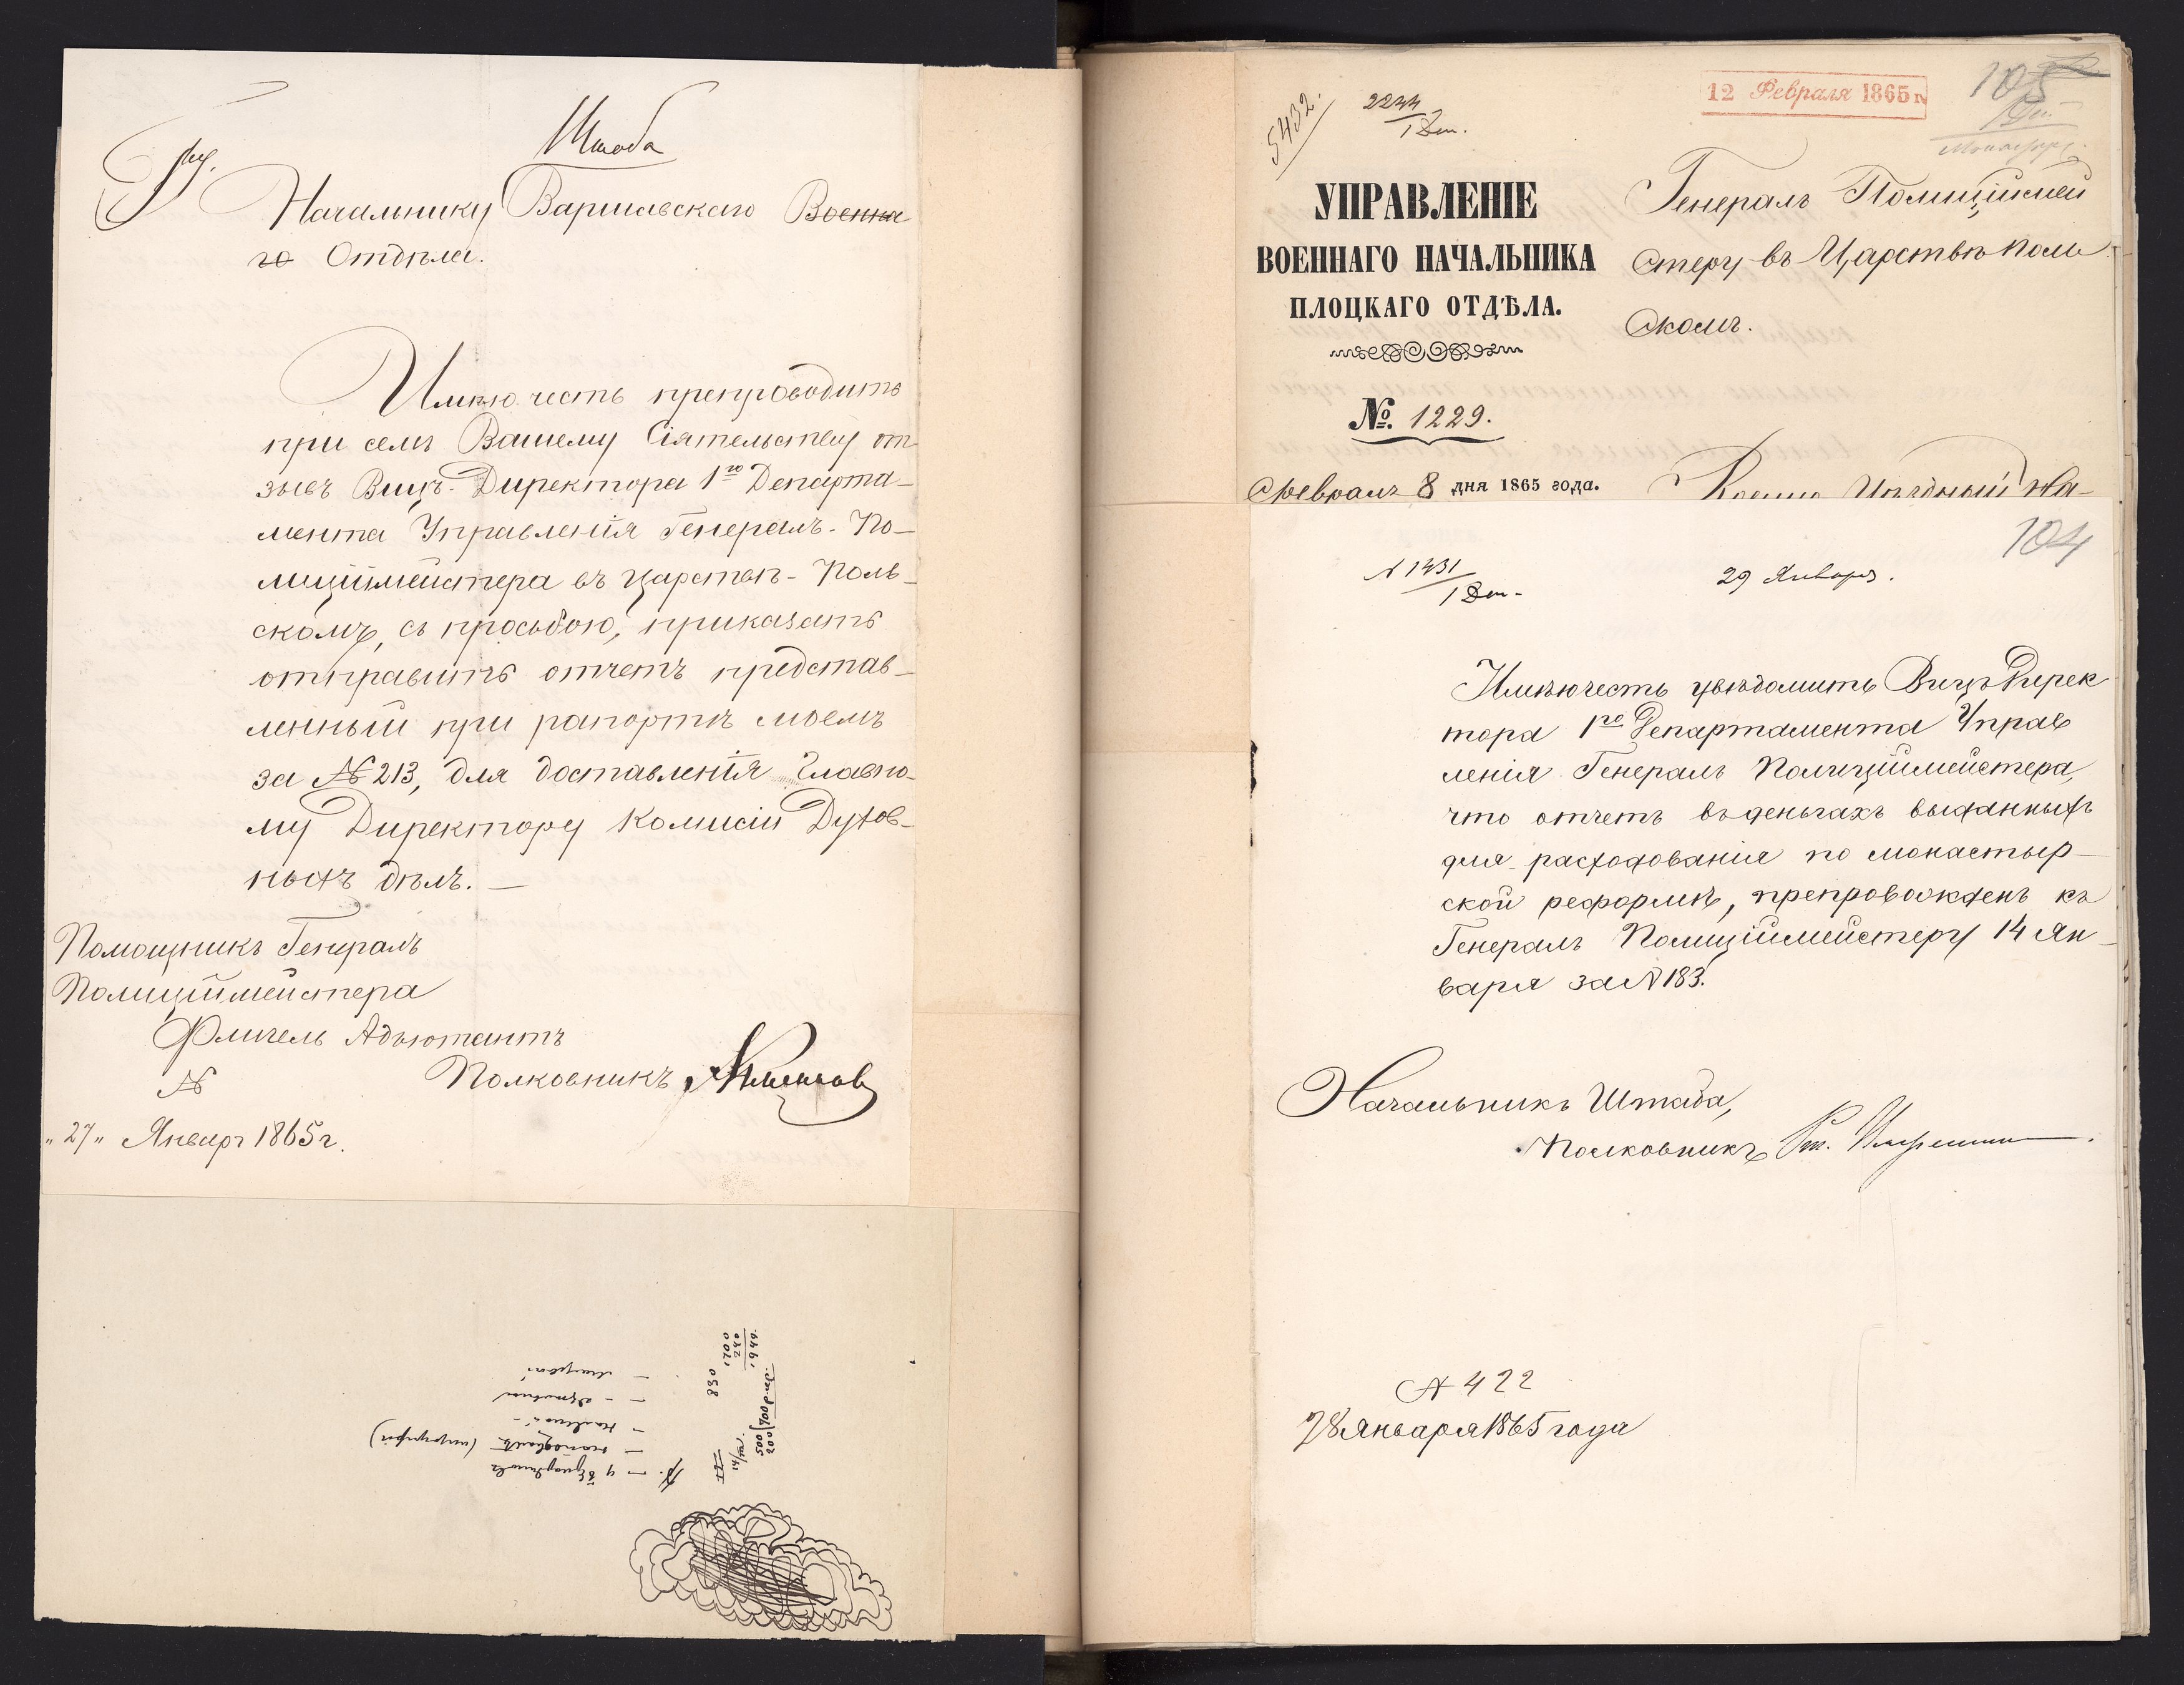 Штаба
Начальнику Варшавскаго Военна
го Отдѣла.
Имѣю честь препроводить
при семъ Вашему Сіятельству от
зывъ Вицъ-Директора 1го Департа-
мента Управленія Генералъ-По-
лиціймейстера въ Царствѣ-Поль-
скомъ, съ просьбою, приказать
отправить отчетъ представ-
ленный при рапортѣ моемъ
за № 213, для доставленія Главно-
му Директору Комисіи Духов-
ныхъ дѣлъ. —
Помощникъ Генералъ
Полиціймейстера
Флигель Адъютантъ
Полковникъ
№
"27" Января 1865 г.
830
1700
240
1940.
500
200
700
12 Февраля 1865 г.
105
5432.
2244
УПРАВЛЕНІЕ
ВОЕННАГО НАЧАЛЬНИКА
ПЛОЦКАГО ОТДѢЛА.
№. 1229.
Февраля 8 дня 1865 года.
Генералъ Полиціймей
стеру въ Царствѣ Поль
скомъ.
Военно Уѣздный На-
104
№ 1431
29 Января.
Имѣю честь увѣдомить Вицъ Дирек
тора 1го Департамента Управ
ленія Генералъ Полиціймейстера,
что отчетъ въ деньгахъ выданныхъ
для расходованія по монастыр-
ской реформѣ, препровожденъ къ
Генералъ Полиціймейстеру 14 Ян-
варя за № 183.
Начальникъ Штаба,
Полковникъ
№ 422
28 Января 1865 года